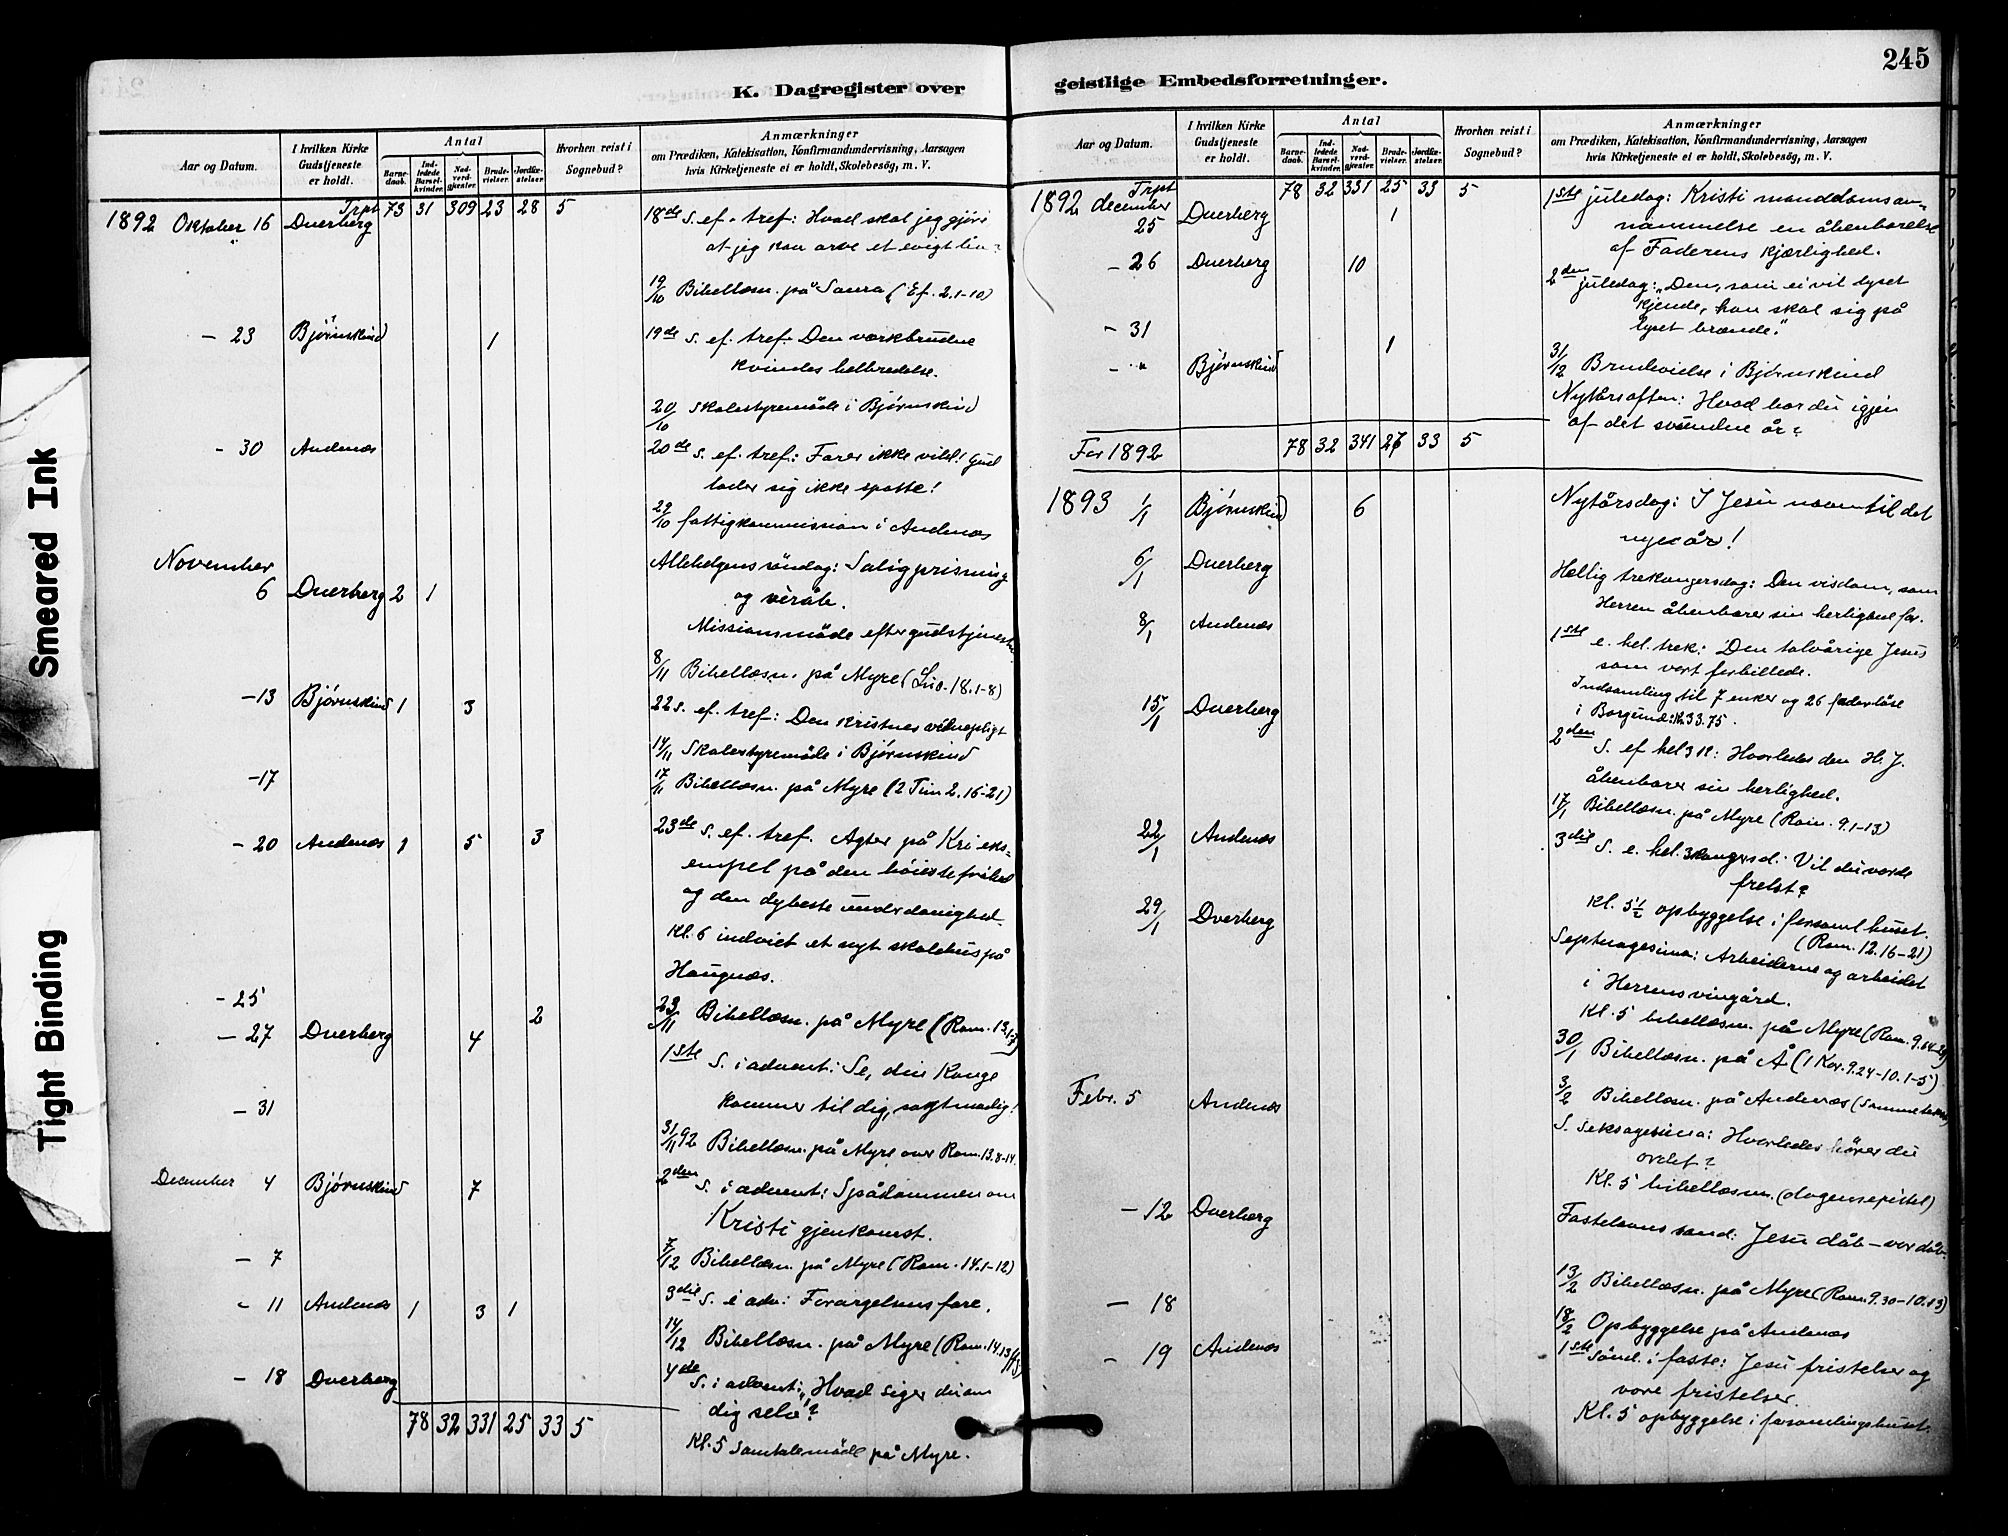 245
K. Dagregister over
Aar og Datum.
I hvilken Kirke Gudstjeneste er holdt.
Antal
Barnedaab.
Indledede Barselkvinder.
Nadverdgjester.
Brudevielser.
Jordfæstelser.
Hvorhen reist i Sognebud?
Anmærkninger
om Prædiken, Katekisation, Konfirmandundervisning, Aarsagen
hvis Kirketjeneste ei er holdt, Skolebesøg, m. V.
Trpt 73 31 309 23 28 5
1892 Oktober 16 Dverberg 18de S. ef. tref: Hvad skal jeg gjøre
at jeg kan arve et evigt liv?
19/10 Bibellæsn. på Saura (Ef. 2.1-10)
- 23 Bjørnskind 1 19de S. ef. tref. Den værkbrudne
kvindes helbredelse.
20/10 Skolestyremöde i Bjørnskind
- 30 Andenæs 20de S. ef. tref: Farer ikke vild! Gud
lader sig ikke spotte!
29/10 fattigkommission i Andenæs
November
6 Dverberg 2 1 Allehelgens söndag: Saligprisning
og veråb.
Missionsmöde efter gudstjenesten.
8/11 Bibellæsn. på Myre (Luc. 18.1-8)
- 13 Bjørnskind 1 3 22 S. ef. tref: Den kristnes vidnepligt
14/11 Skolestyremöde i Bjørnskind
- 17 17/11 Bibellæsn. på Myre (2 Tim 2.16-21)
- 20 Andenæs 1 5 3 23de S. ef. tref. Agter på Kri eks=
empel på den höieste frihed
og den dybeste underdanighed.
Kl. 6 indviet et nyt skolehus på
Haugnæs.
- 25 2 23/11 Bibellæsn. på Myre (Rom. 13.1-7)
- 27 Dverberg 4 1ste S. i advent: Se, din Konge
kommer til dig, sagtmodig!
- 31 31/11 92 Bibellæsn. på Myre over Rom. 13.8-14.
December 4 Bjørnskind 7 2den S. i advent: Spådommen om
Kristi gjenkomst.
- 7 7/12 Bibellæsn. på Myre (Rom. 14.1-12)
- 11 Andenæs 1 3 1 3die S. i adv: Forargelsens fare.
14/12 Bibellæsn. på Myre (Rom. 14.13ff)
- 18 Dverberg 4de S. i advent: "Hvad siger du om
dig selv"?
78 32 331 25 33 5
Kl. 5 Samtalemöde på Myre.
geistlige Embedsforretninger.
Aar og Datum.
I hvilken Kirke Gudstjeneste er holdt.
Antal
Barnedaab.
Indledede Barselkvinder.
Nadverdgjester.
Brudevielser.
Jordfæstelser.
Hvorhen reist i Sognebud?
Anmærkninger
om Prædiken, Katekisation, Konfirmandundervisning, Aarsagen
hvis Kirketjeneste ei er holdt, Skolebesøg, m. V.
Trpt 78 32 331 25 33 5
1892 december 25 Dverberg 1 1ste juledag: Kristi manddomsan=
nammelse en åbenbarelse
af Faderens kjærlighed.
- 26 Dverberg 10 2den juledag: "Den, som ei vil lyset
kjende, han skal sig på
lyset brænde."
- 31 1 31/12 Brudevielse i Bjørnskind
- " Bjørnskind Nytårsaften: Hvad har du igjen
af det svundne år?
For 1892 78 32 341 27 33 5
1893 1/1 Bjørnskind 6 Nytårsdag: I Jesu navn til det
nye år!
6/1 Dverberg Hellig trekongersdag: Den visdom, som
Herren åbenbarer sin herlighed for.
8/1 Andenæs 1ste e. hel. trek: Den tolvårige Jesus
som vort forbillede.
Indsamling til 7 enker og 26 faderløse
i Borgund: K 33.75.
15/1 Dverberg 2den S. ef hel 3 K: Hvorledes den H. J.
åbenbarer sin herlighed.
17/1 Bibellæsn. på Myre (Rom. 9.1-13)
22/1 Andenæs 3die S. e. hel. 3kongersd: Vil du vorde
frelst?
Kl. 5 1/2 opbyggelse i forsaml huset.
(Rom. 12.16-21)
29/1 Dverberg Septuagesima: Arbeiderne og arbeidet
i Herrens vingård.
Kl. 5 bibellæsn. på Myre (Rom. 9.14-29)
30/1 Bibellæsn. på Å (1 Kor. 9.24-10.1-5)
3/2 Bibellæsn. på Andenæs (Samme tekst)
Febr. 5 Andenæs S. Seksagesima: Hvorledes hörer du
ordet?
Kl. 5 bibellæsn. (dagens epistel)
- 12 Dverberg Fastelavns sönd: Jesu dåb - vor dåb.
13/2 Bibellæsn. på Myre (Rom. 9.30-10.13)
- 18 18/2 Opbyggelse på Andenæs
- 19 Andenæs 1ste Sönd. i faste: Jesu fristelser og
vore fristelser.
Kl. 5 opbyggelse i forsamlingshuset.
Smeared Ink
Tight Binding